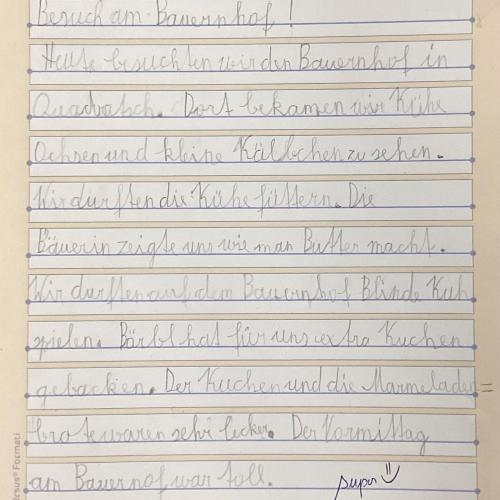 Besuch am Bauernhof!
Heute besuchten wir den Bauernhof in
Quadratsch. Dort bekamen wir Kühe
Ochsen und kleine Kälbchen zu sehen.
Wir durften die Kühe füttern. Die
Bäuerin zeigte uns wie man Butter macht.
Wir durften auf dem Bauernhof Blinde Kuh
spielen. Bärbl hat für uns extra Kuchen
gebacken. Der Kuchen und die Marmeladen=
brote waren sehr lecker. Der Vormittag
am Bauernhof war toll.
super